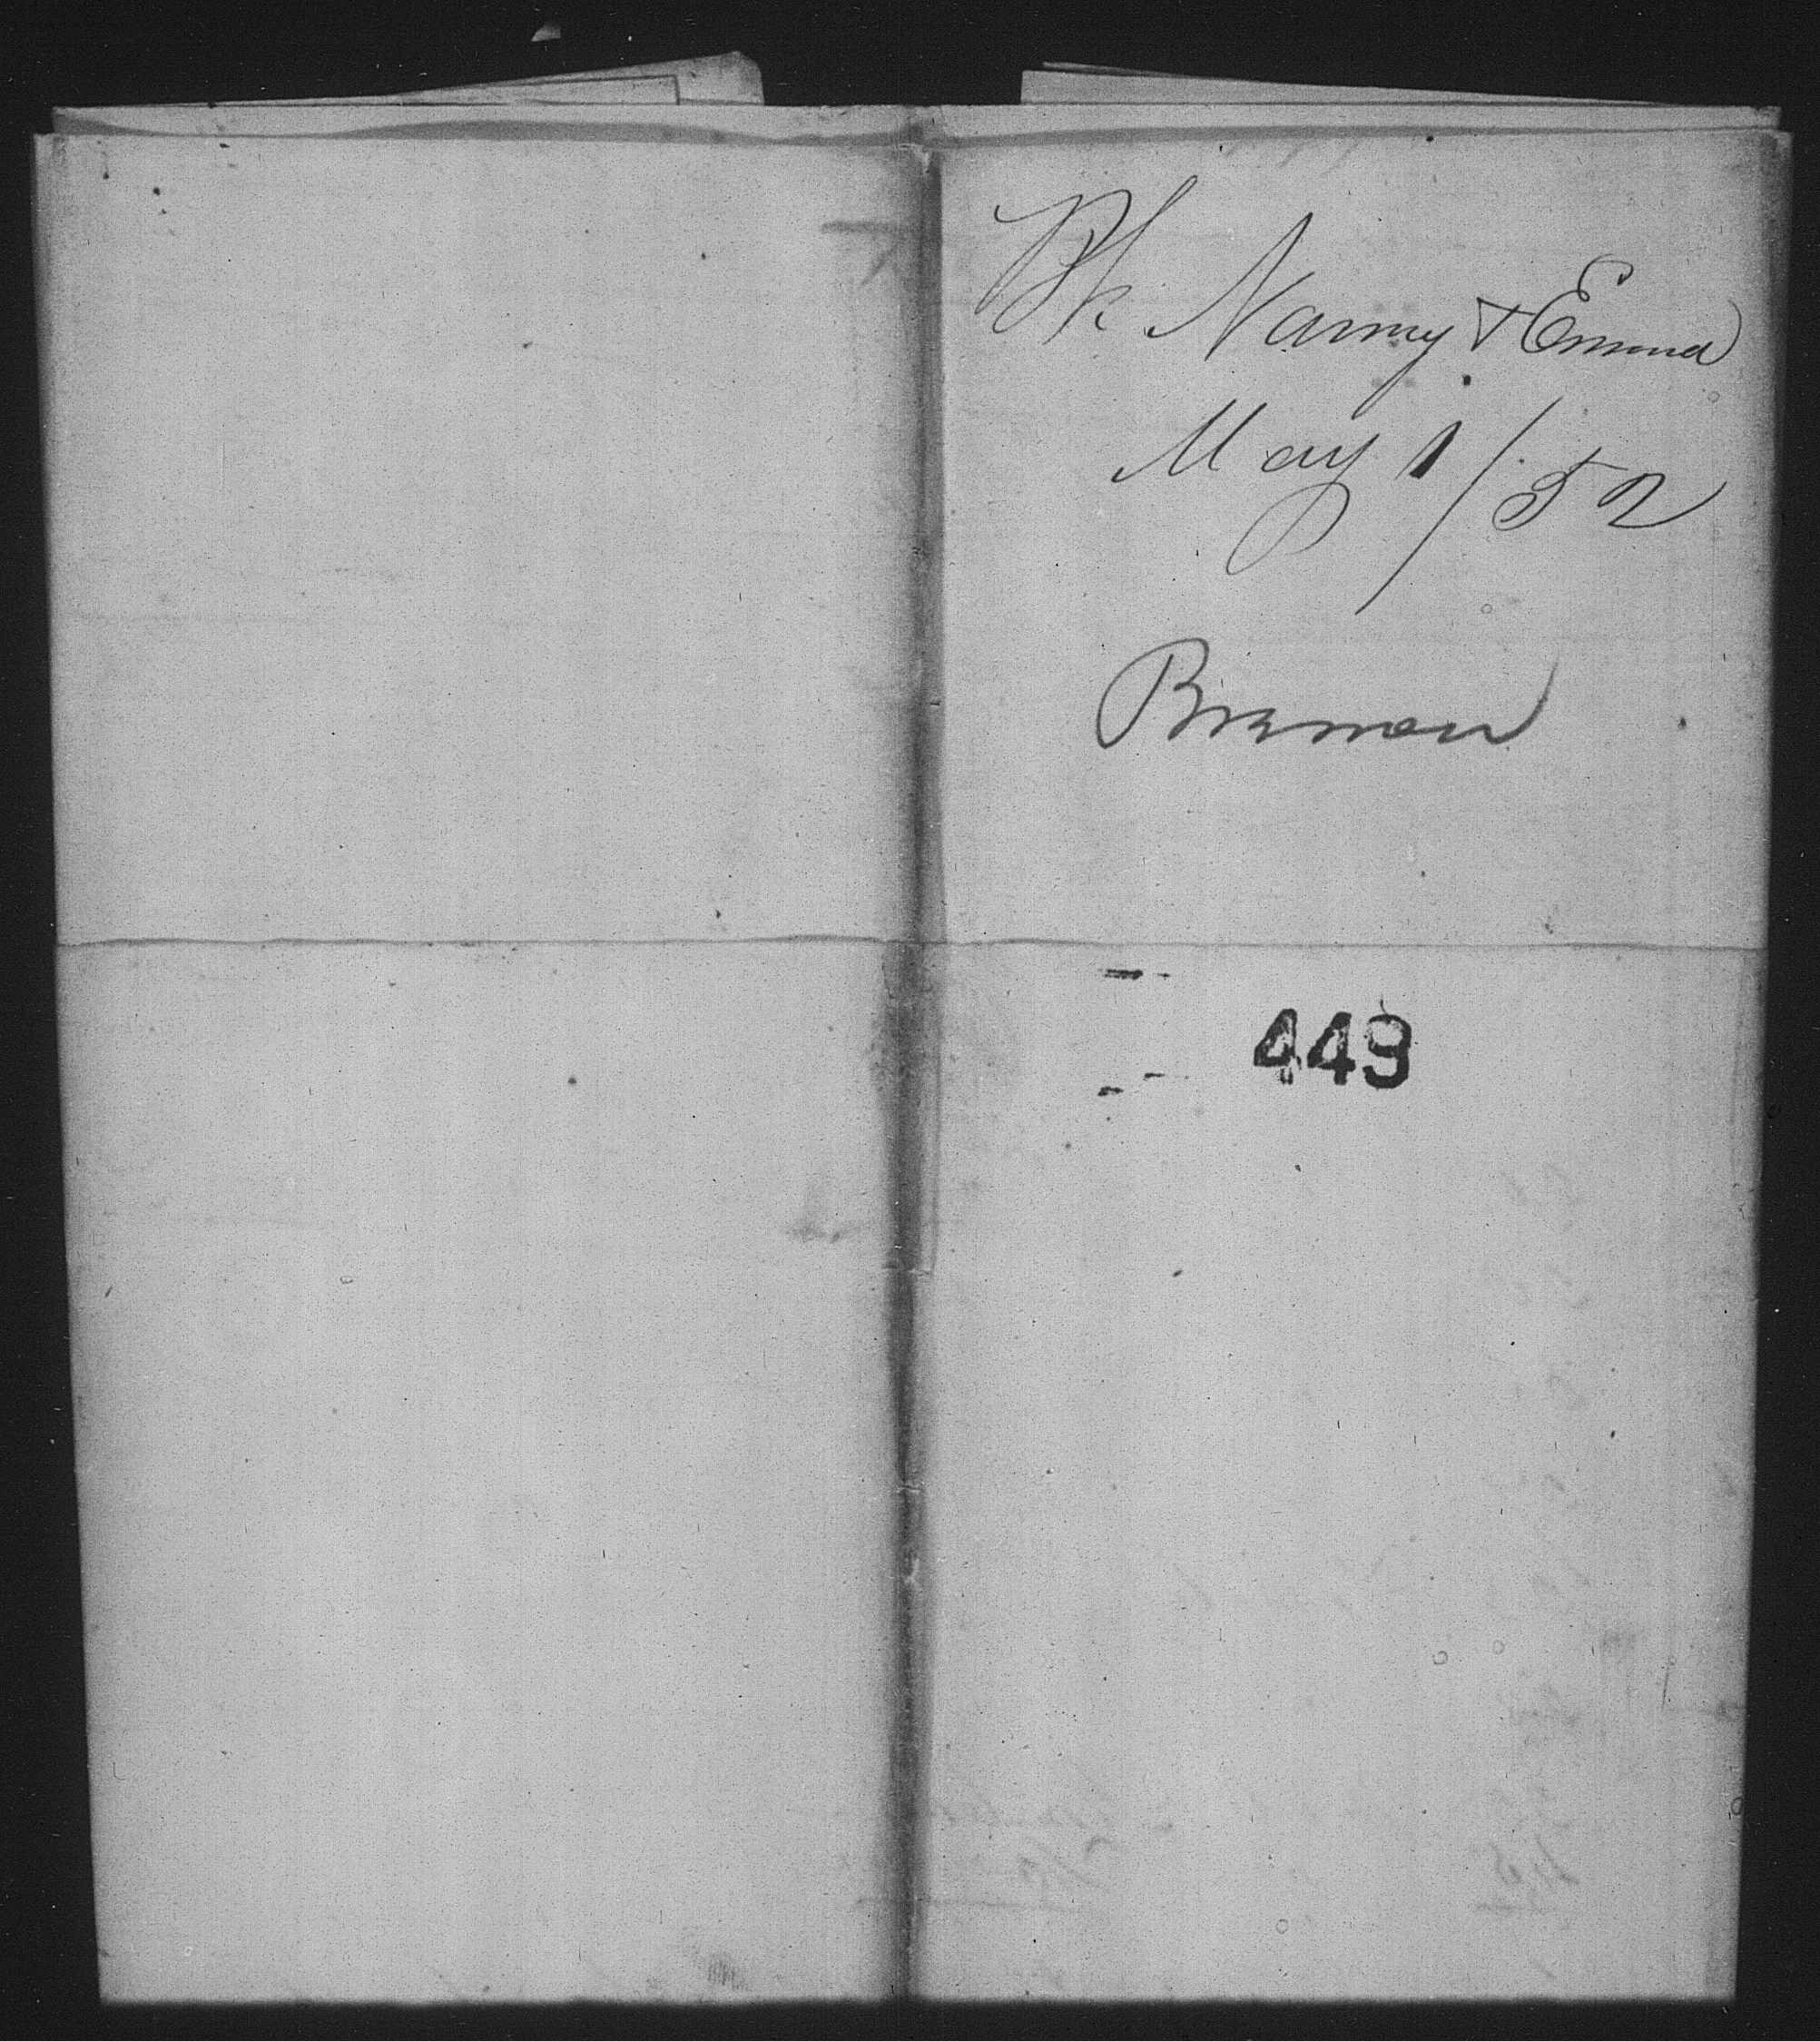 Bk Nanny & Emma
May 1/52
Bremen
449